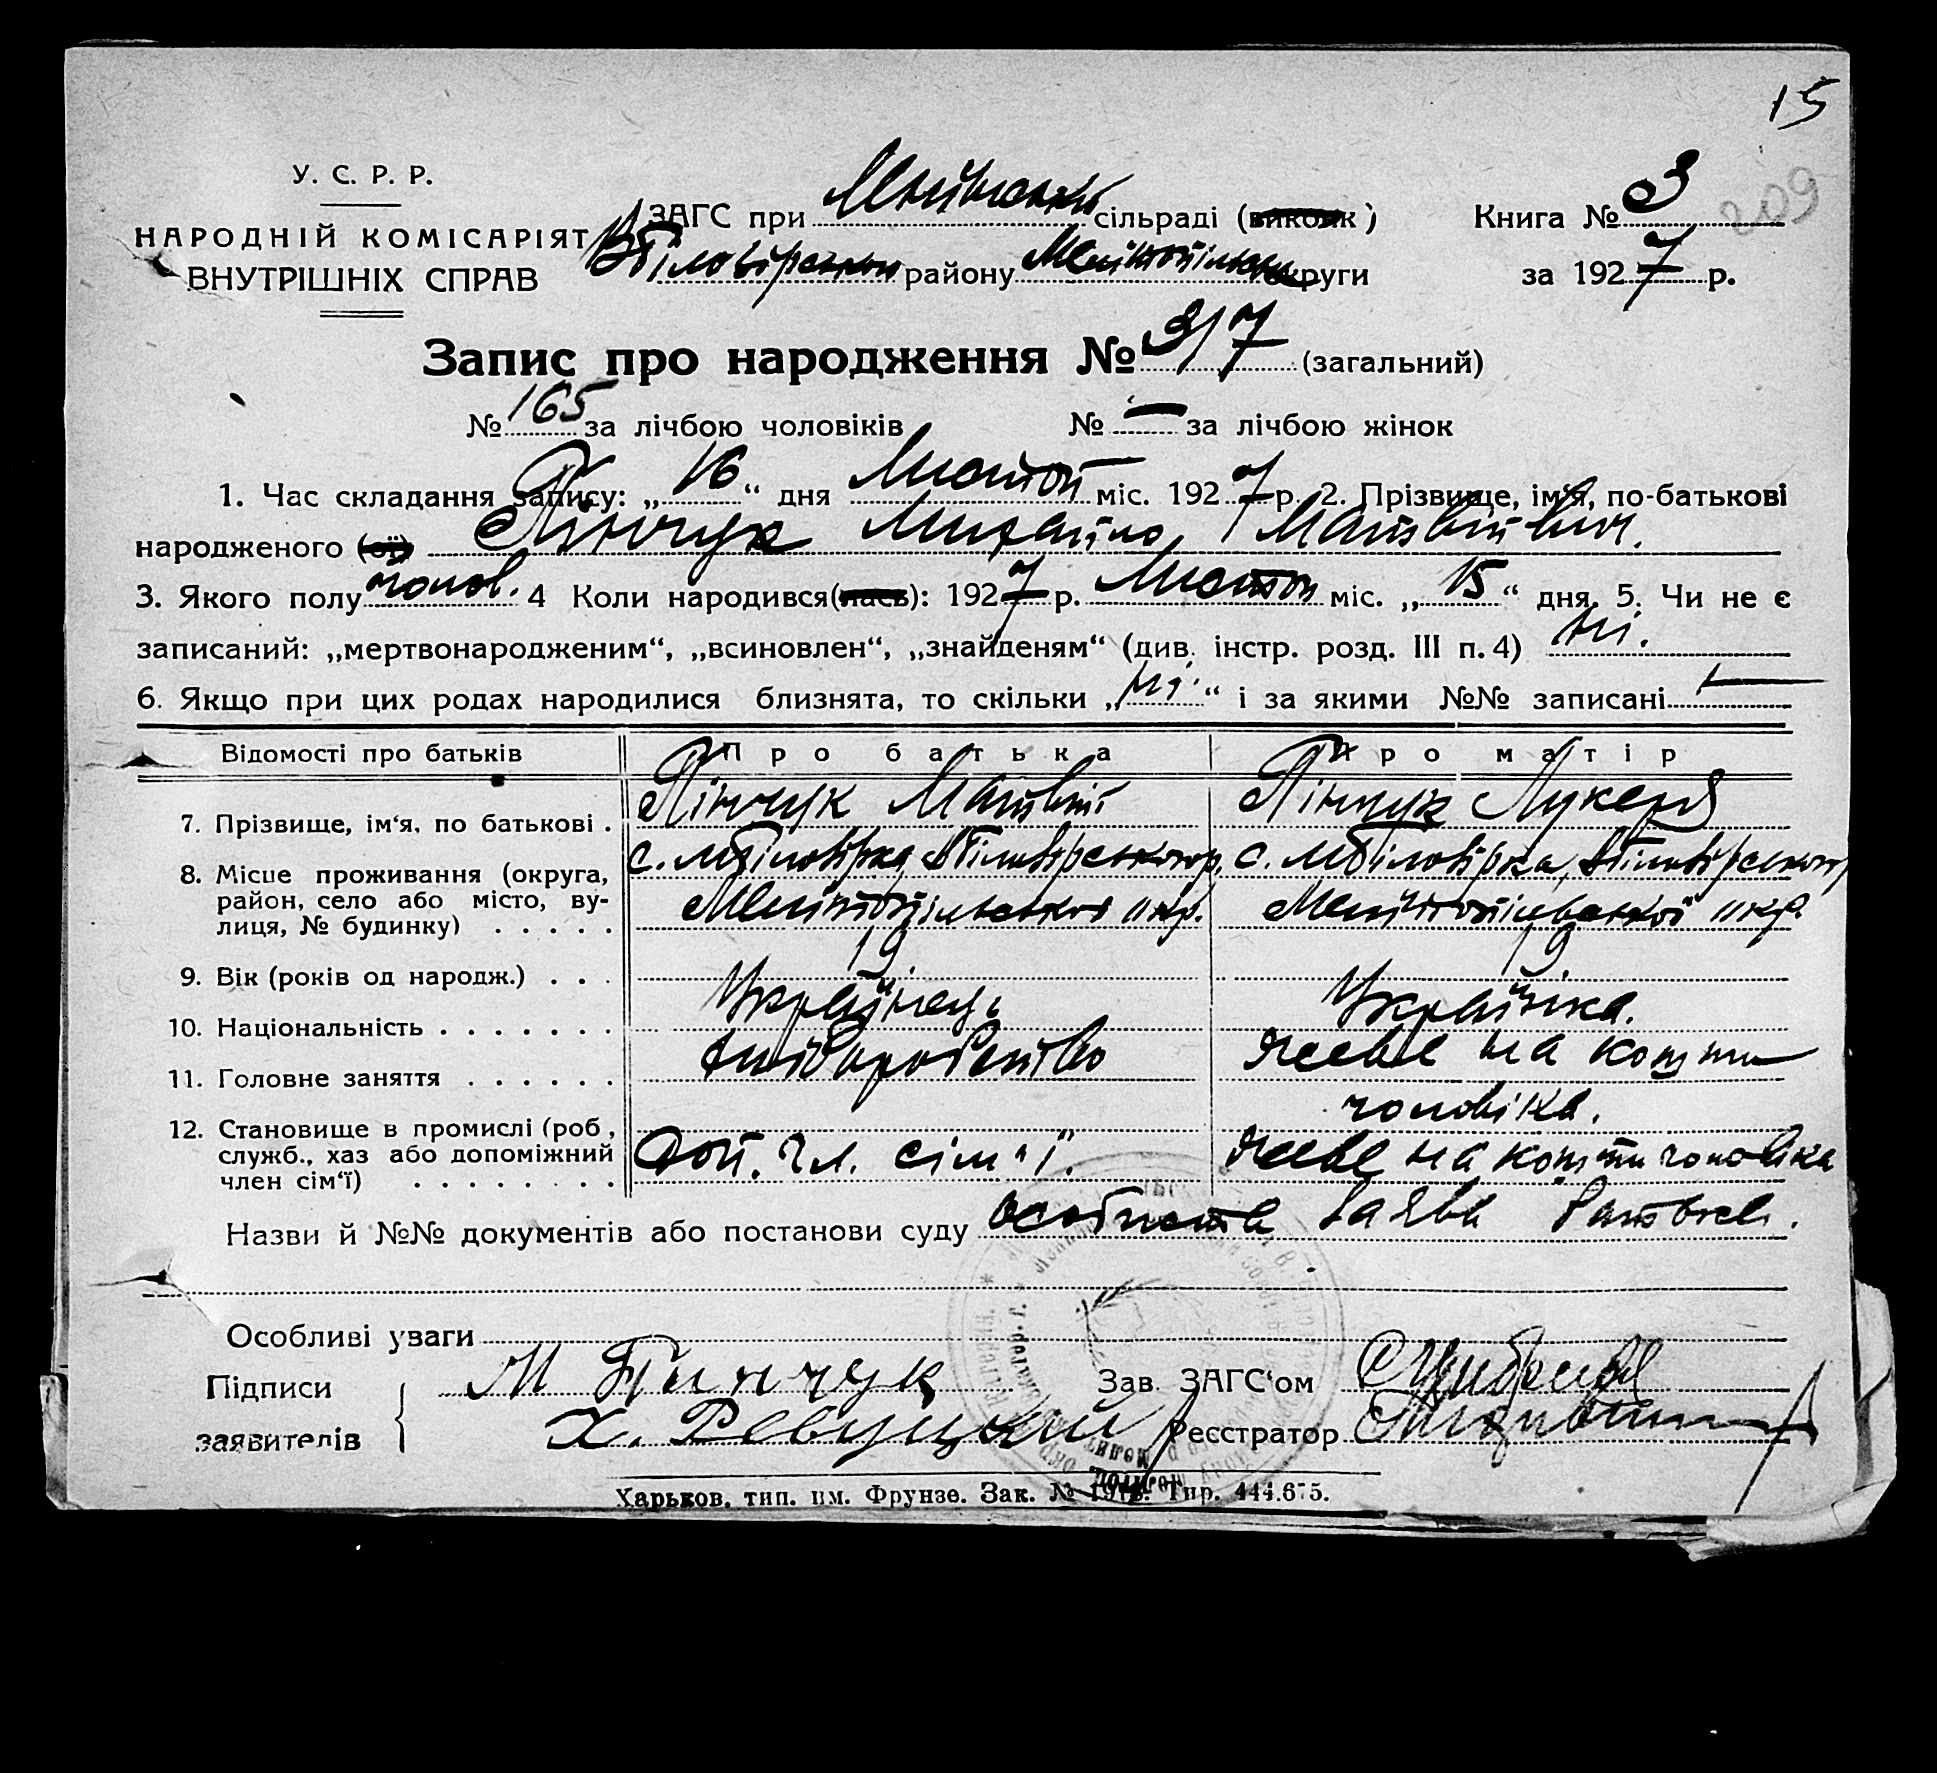 15
209
У. С. Р. Р.
НАРОДНІЙ КОМІСАРІЯТ
ВНУТРІШНІХ СПРАВ
ЗАГС при сільраді (викон к)
В Білозірського району Мелітопільської округи
Книга № 3
за 1927 р.
Запис про народження № 317 (загальний)
№ 165 за лічбою чоловіків № — за лічбою жінок
1. Час складання запису: „16“ дня Листоп міс. 1927 р. 2. Прізвище, ім'я, по-батькові
народженого (ої) Пінчук Михайло Матвійович.
3. Якого полу чолов. 4 Коли народився(лась): 1927 р. Листоп міс. „15“ дня. 5. Чи не є
записаний: „мертвонародженим“, „всиновлен“, „знайденям“ (див. інстр. розд. III п. 4) ні.
6. Якщо при цих родах народилися близнята, то скільки „ні“ і за якими №№ записані —
Відомості про батьків Про батька Про матір
7. Прізвище, ім'я, по батькові . Пінчук Матвій Пінчук Лукеря
8. Місце проживання (округа, район, село або місто, вулиця, № будинку) . . . . . с. Мелітопільської окр. с. Мелітопільської окр.
9. Вік (років од народж.) . . . 19 19
10. Національність . . . . . . . Українець Українка.
11. Головне заняття . . . . . . хліборобство живе на кошти чоловіка.
12. Становище в промислі (роб., служб., хаз або допоміжний член сім'ї) . . . . . . . . Доп. чл. сім'ї. живе на кошти чоловіка
Назви й №№ документів або постанови суду особиста заява батька.
Особливі уваги
Підписи заявителів М Пинчук
Х. Ревуцкий
Зав. ЗАГС'ом
Реєстратор
Харьков. тип. им. Фрунзе. Зак. № Тир. 444.675.